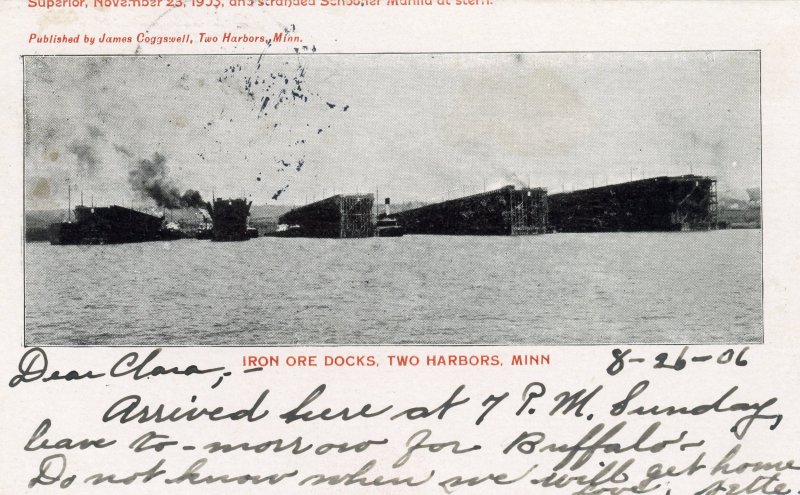 Superior, November 23, 1905, and stranded Schooner Manila at stern.
Published by James Coggswell, Two Harbors, Minn.
IRON ORE DOCKS, TWO HARBORS, MINN
Dear Clara,;- 8-26-06
Arrived here at 7 P.M. Sunday,
leave to-morrow for Buffalo-
Do not know when we will get home
Love,